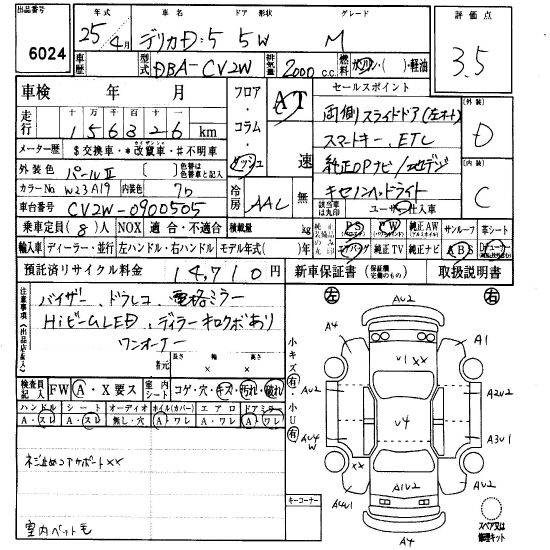 出品番号 6024
年式 25年4月 車名 デリカD:5 ドア 形状 5W グレード M
評価点 3.5
車歴 型式 DBA-CV2W 排気量 2000 c.c. 燃料 ガソリン・( )・軽油
車検 年 月
フロア・コラム・インパネ
AT 速
セールスポイント
走行 十万 万 千 百 十 一
156326 km
両側スライドドア(左オート)
スマートキー、ETC
純正OPナビ/地デジ
キセノンヘッドライト
外装 D
内装 C
メーター歴 $交換車・*改竄車・#不明車
外装色 パールII [ ] 色替は色替車と記入
カラーNo W23A19 内装色
車台番号 CV2W-0900505
冷房 AAC 無
該当車は丸印 ユーザー仕入車
乗車定員(8)人 NOX 適合・不適合 積載量 kg
PS PW 純正AW サンルーフ 革シート
輸入車 ディーラー・並行 左ハンドル・右ハンドル モデル年式( )年
エアバッグ 純正TV 純正ナビ ABS
預託済リサイクル料金 14,710円
新車保証書(保証欄完備のもの) 取扱説明書
注意事項(出品店記入)
バイザー、ドラレコ、電格ミラー
HiビームLED、ディラーキロクボあり
ワンオーナー
諸元 長さ × 幅 × 高さ
検査員記入 FW A・X要ス 室内シート コゲ・穴・キズ・汚れ・破れ
ハンドル シート オーディオ ホイル(カバー) エアロ ドアミラー
A・スレ A・スレ 無し・穴 A・ワレ A・ワレ A・ワレ
小キズ 有
小U 有
キーコーナー
室内ペット毛
左 右
AU2
A4 A1
U1 ××
AU2 A2U2
U4
AU4 W A3U1
××
A4U1 A1U2
A4
スペア又は修理キット